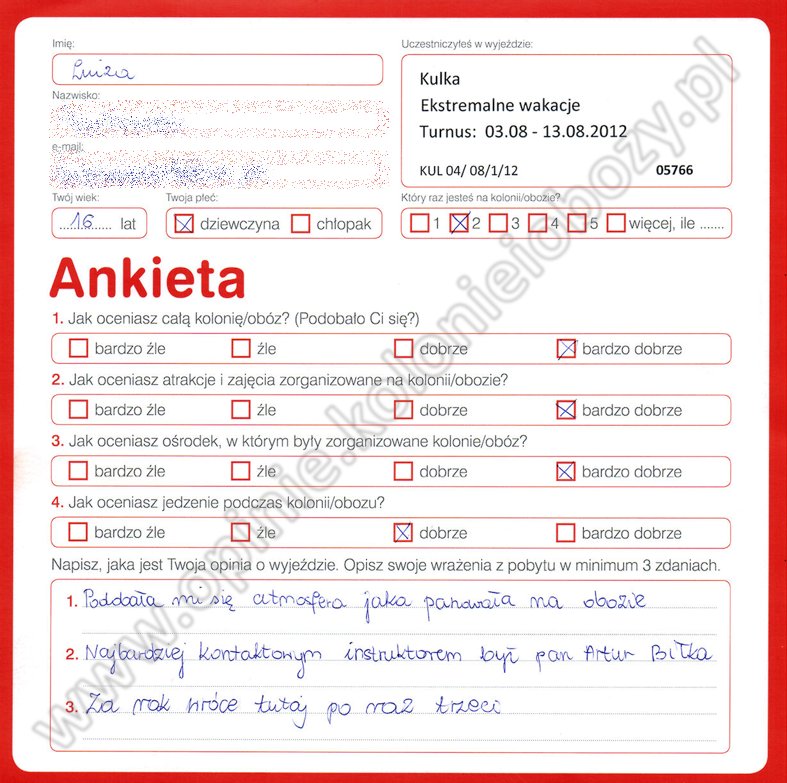 Imię:
Luiza
Uczestniczyłeś w wyjeździe:
Kulka
Ekstremalne wakacje
Turnus: 03.08 - 13.08.2012
KUL 04/ 08/1/12 05766
Nazwisko:
e-mail:
Twój wiek:
16 lat
Twoja płeć:
dziewczyna chłopak
Który raz jesteś na kolonii/obozie?
1 2 3 4 5 więcej, ile .......
Ankieta
1. Jak oceniasz całą kolonię/obóz? (Podobało Ci się?)
bardzo źle źle dobrze bardzo dobrze
2. Jak oceniasz atrakcje i zajęcia zorganizowane na kolonii/obozie?
bardzo źle źle dobrze bardzo dobrze
3. Jak oceniasz ośrodek, w którym były zorganizowane kolonie/obóz?
bardzo źle źle dobrze bardzo dobrze
4. Jak oceniasz jedzenie podczas kolonii/obozu?
bardzo źle źle dobrze bardzo dobrze
Napisz, jaka jest Twoja opinia o wyjeździe. Opisz swoje wrażenia z pobytu w minimum 3 zdaniach.
1. Podobała mi się atmosfera jaka panowała na obozie
2. Najbardziej kontaktowym instruktorem był pan Artur Biłka
3. Za rok wrócę tutaj po raz trzeci
www.opinie.kolonieiobozy.pl